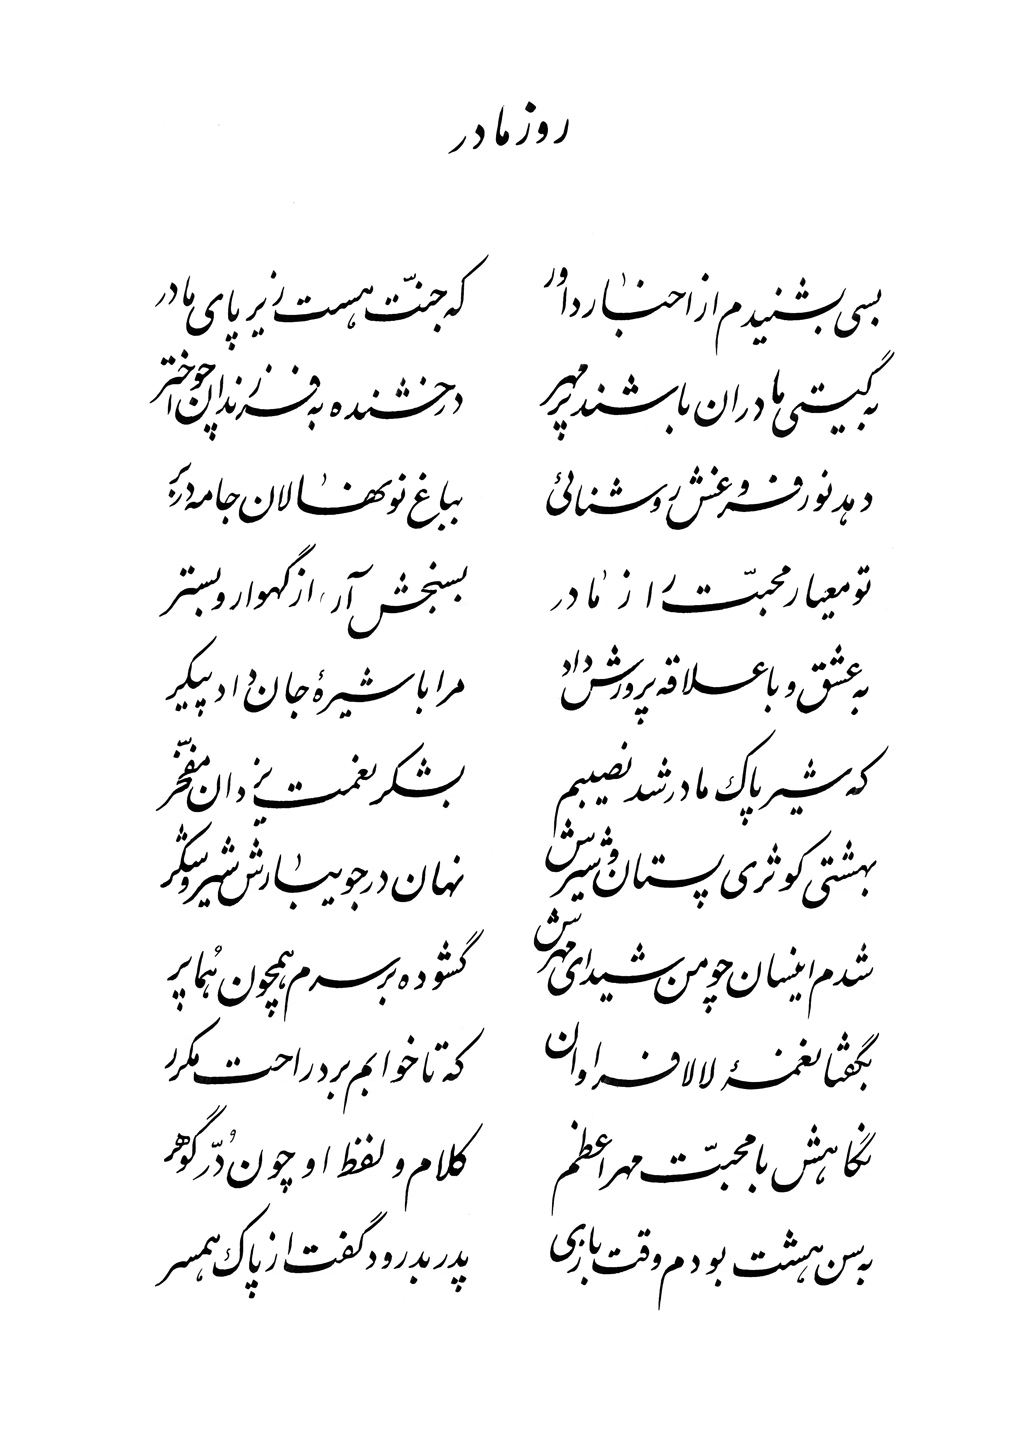 روز مادر
بسی بشنیدم از اخبار داور که جنّت هست زیر پای مادر
به گیتی مادران باشند پر مهر درخشنده به فرزندان چو اختر
دهد نور فروغش روشنائی بباغ نونهالان جامه در بر
تو معیار محبّت را ز مادر بسنجش آر، از گهوار و بستر
به عشق و با علاقه پرورش داد مرا با شیرهٔ جان داد پیکر
که شیر پاک مادر شد نصیبم بشکر نعمت یزدان مفخّر
بهشتی کوثری پستان و شیرش نهان در جویبارش شیر و شکّر
شدم اینسان چو من شیدای مهرش گشوده بر سرم همچون هُما پر
بگفتا نغمهٔ لالا فراوان که تا خوابم برد راحت مکرر
نگاهش با محبّت مهر اعظم کلام و لفظ او چون دُرّ گوهر
به سن هشت بودم وقت بازی پدر بدرود گفت از پاک همسر